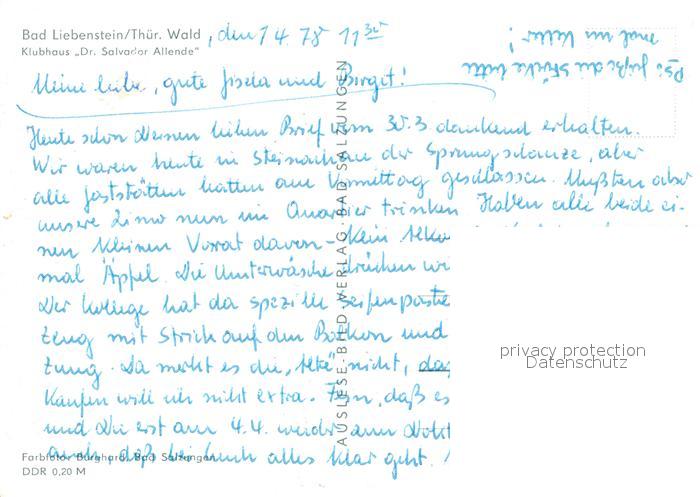 Bad Liebenstein/Thür. Wald
Klubhaus „Dr. Salvador Allende"
, den 1 4. 78 11 30
Ps: gieße die Stücke bitte
mal im Keller!
Meine liebe, gute Gisela und Birget!
Heute schon Deinen lieben Brief vom 30.3 dankend erhalten.
Wir waren heute in Steinach an der Sprungschanze, aber
alle Gaststätten hatten am Vormittag geschlossen. Mußten aber
unsere Limo nun im Quartier trinken Haben alle beide ei-
nen kleinen Vorrat davon - Kein Alko
mal Äpfel. Die Unterwäsche drücken wi
Der Kollege hat da spezille Seifenpaste
zeug mit Strich auf den Balkon und
zung. Da merkt es die „Alte" nicht, das
Kaufen will ich nicht extra. daß es
und Du erst am 4.4. wieder zum Dokt
auch, daß bei Euch alles klar geht. !
AUSLESE-BILD-VERLAG BAD SALZUNGEN
privacy protection
Datenschutz
Farbfoto: Burghard, Bad Salzungen
DDR 0,20 M